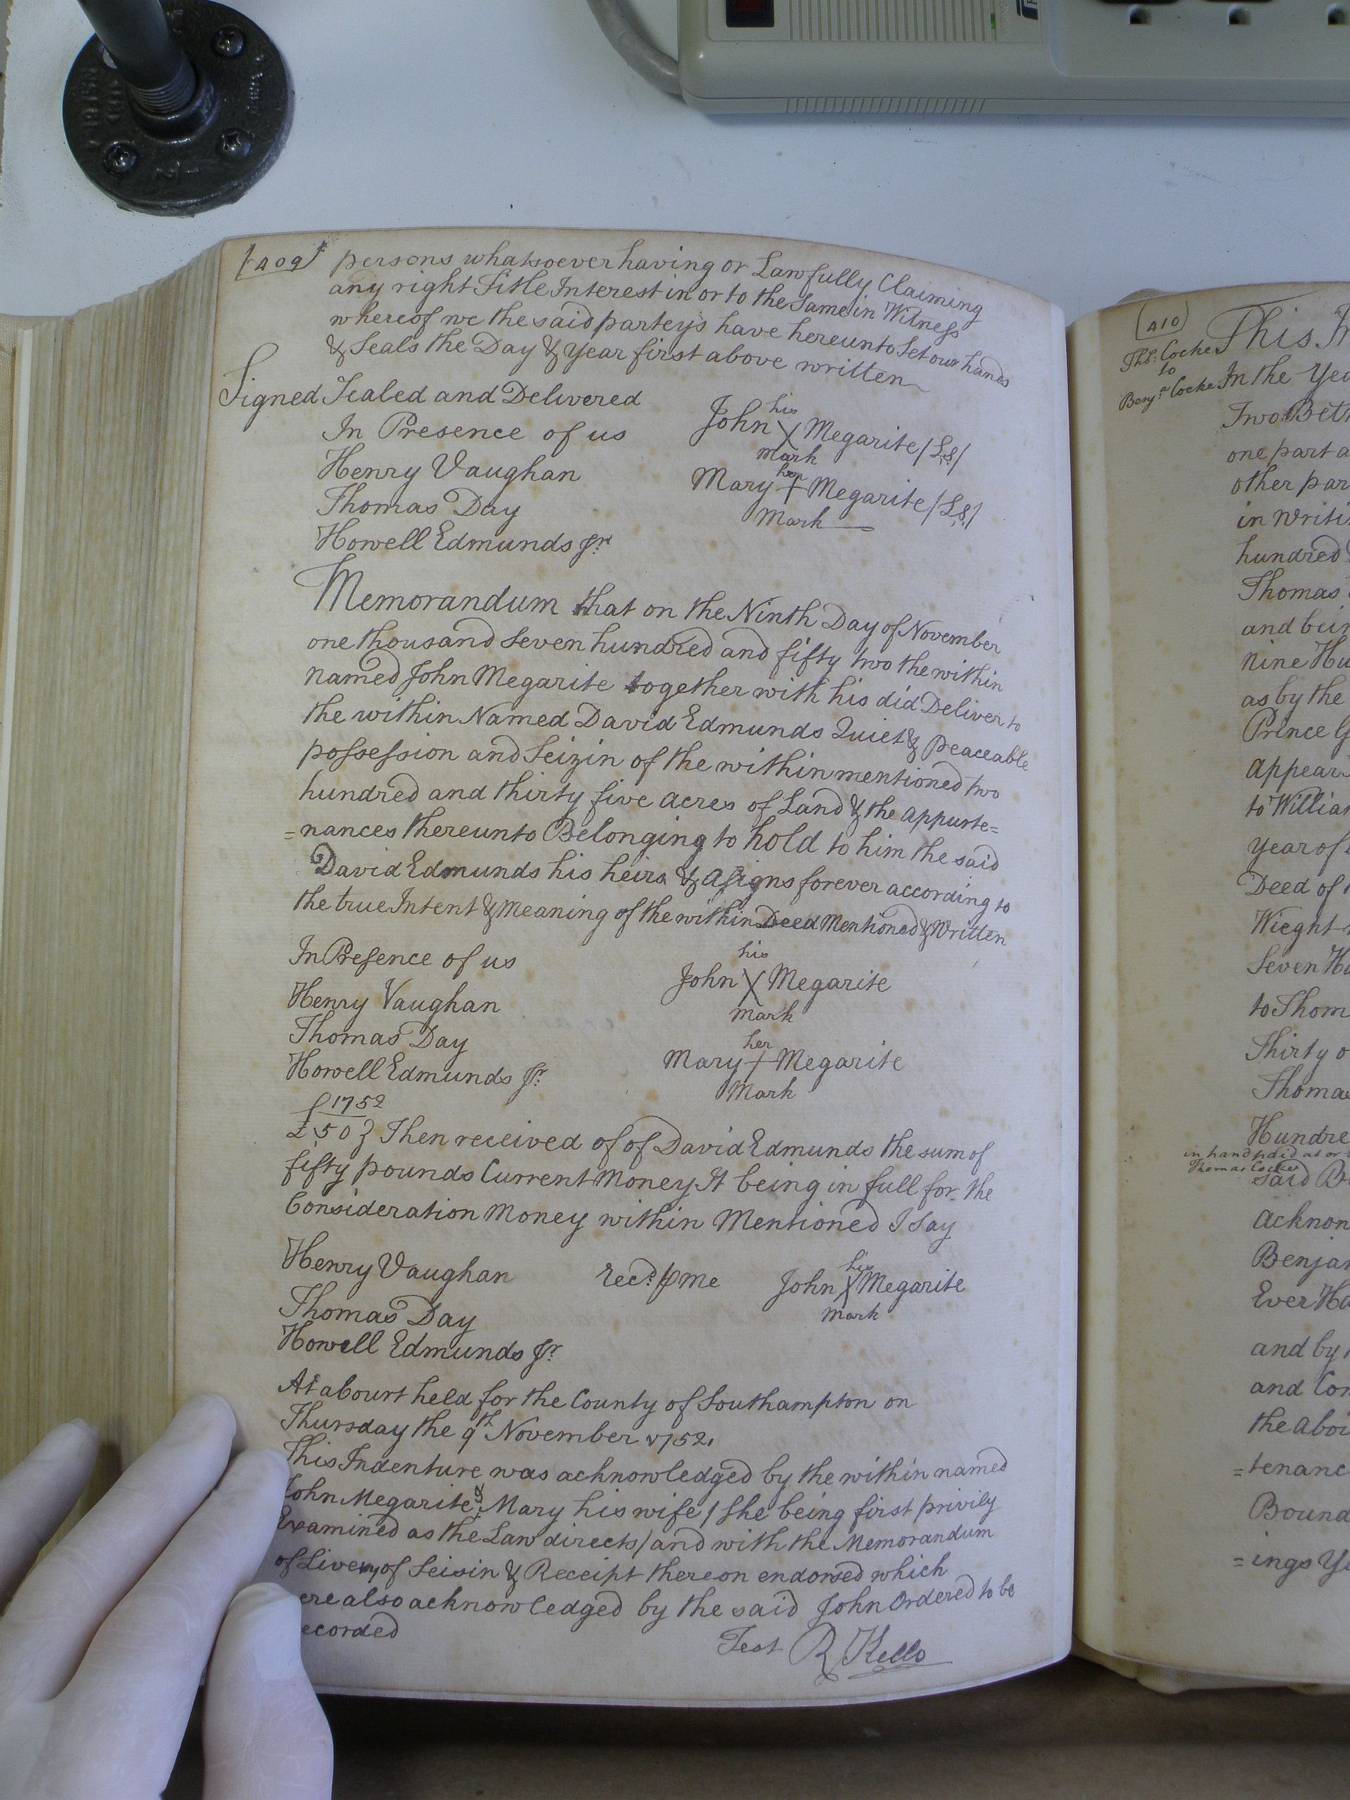 [409]
persons whatsoever having or Lawfully Claiming
any right Title Interest in or to the Same in Witness
whereof we the said partey's have hereunto Set our hands
& Seals the Day & Year first above written
Signed Sealed and Delivered
In Presence of us
Henry Vaughan
Thomas Day
Howell Edmunds Jr
his
John X Megarite /LS/
mark
her
Mary + Megarite /LS/
Mark
Memorandum that on the Ninth Day of November
one thousand Seven hundred and fifty two the within
named John Megarite together with his did Deliver to
the within Named David Edmunds Quiet & peaceable
possession and Seizin of the within mentioned two
hundred and thirty five acres of Land & the appurte=
=nances thereunto Belonging to hold to him the said
David Edmunds his heirs & assigns forever according to
the true Intent & Meaning of the within Deed Mentioned & Written
In Presence of us
Henry Vaughan
Thomas Day
Howell Edmunds Jr
his
John X Megarite
Mark
her
Mary + Megarite
Mark
1752
£50} Then received of of David Edmunds the sum of
fifty pounds Current Money It being in full for the
Consideration Money within Mentioned I Say
Henry Vaughan
Thomas Day
Howell Edmunds Jr
Recd. p me
his
John X Megarite
mark
At a Court held for the County of Southampton on
Thursday the 9th November 1752.
This Indenture was acknowledged by the within named
John Megarite & Mary his wife /She being first privily
Examined as the Law directs/ and with the Memorandum
of Livery of Seisin & Receipt thereon endorsed which
ere also acknowledged by the said John Ordered to be
ecorded
Test R Kello
(410)
Ths. Cocke
to
Benja. Cocke
This
In the Yea
Two Bet
one part a
other par
in writi
hundred
Thomas
and bein
Nine Hu
as by the
Prince G
appear
to Willia
year of
Deed of
Wieght
Seven H
to Thom
Thirty o
Thoma
Hundre
in hand paid at or
Thomas Cocke
Said B
acknow
Benja
Ever Ha
and by
and Con
the abo
=tenanc
Bound
=ings Y